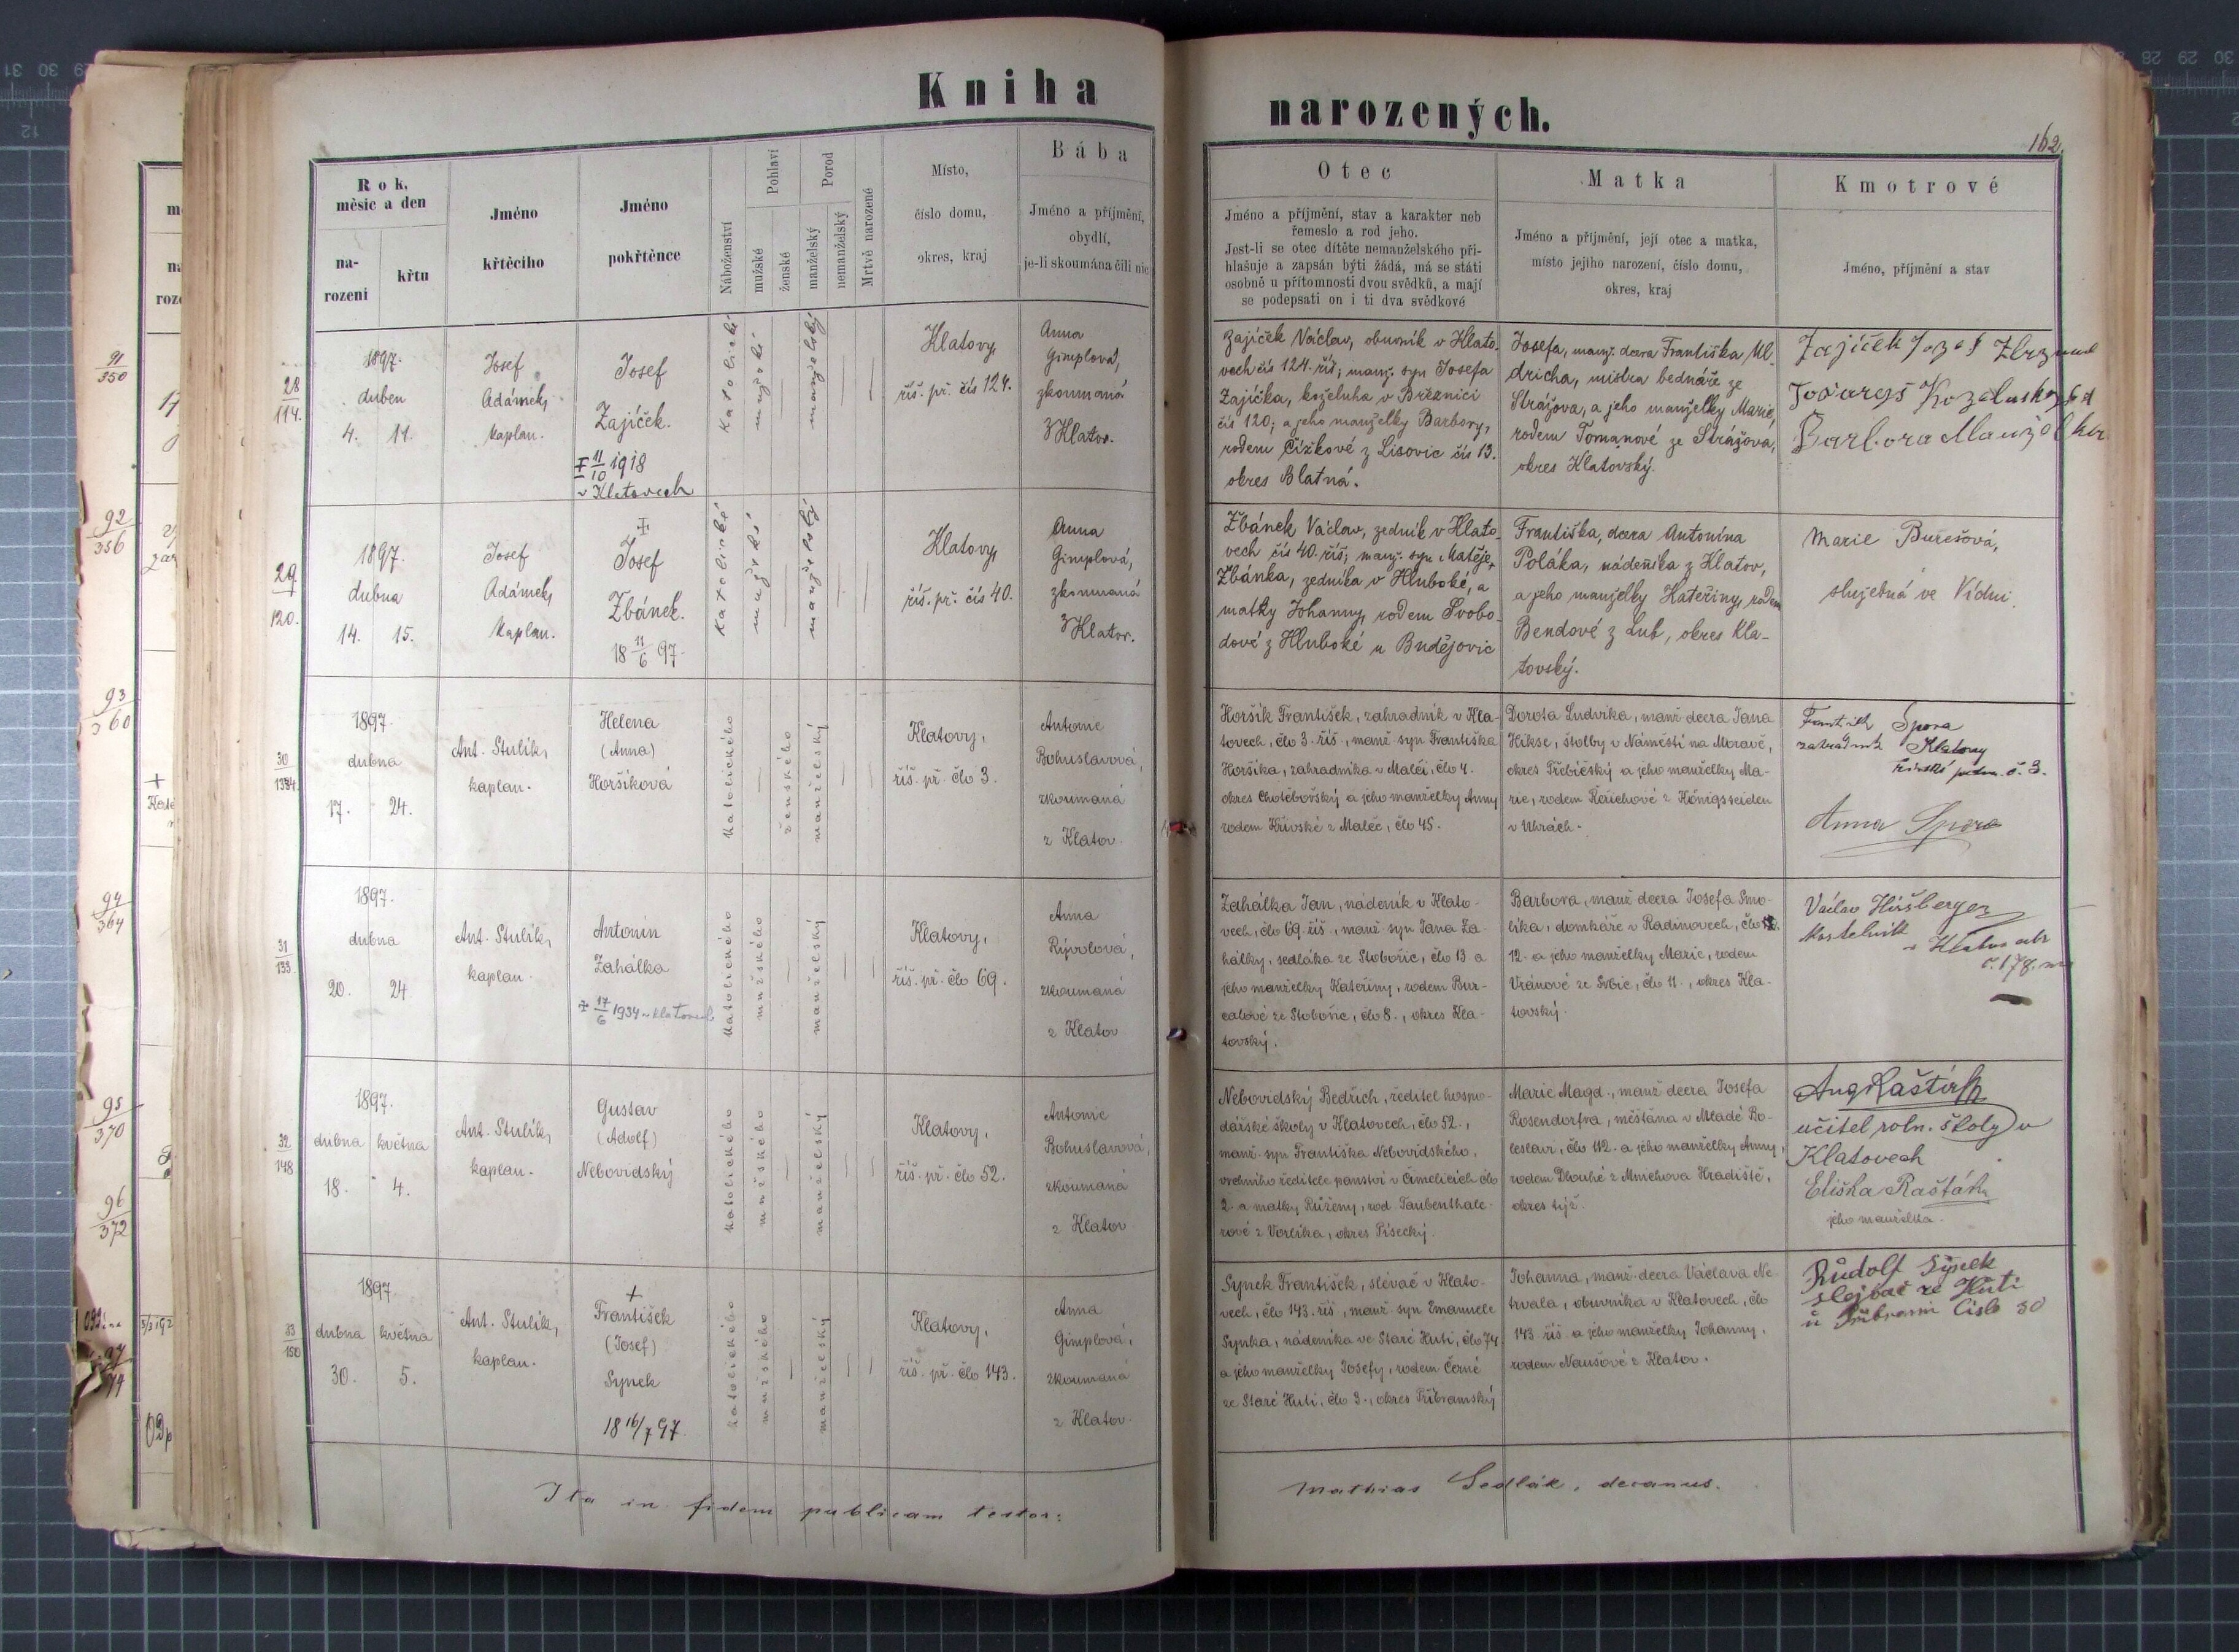 Kniha
narozených.
162.
Rok,
měsíc a den
na-
rozeni
křtu
Jméno
křtěcího
Jméno
pokřtěnce
Náboženství
Pohlaví
mužské
ženské
Porod
manželský
nemanželský
Mrtvě narozené
Místo,
číslo domu,
okres, kraj
Bába
Jméno a příjmění,
obydlí,
je-li skoumána čili nic
Otec
Jméno a příjmění, stav a karakter neb
řemeslo a rod jeho.
Jest-li se otec dítěte nemanželského při-
hlašuje a zapsán býti žádá, má se státi
osobně u přítomnosti dvou svědků, a mají
se podepsati on i ti dva svědkové
Matka
Jméno a příjmění, její otec a matka,
místo jejího narození, číslo domu,
okres, kraj
Kmotrové
Jméno, příjmění a stav
28
114.
1897.
duben
4. 11.
Josef
Adámek,
kaplan.
Josef
Zajíček.
11/10 1918
v Klatovech
Katolické
mužské
manželský
Klatovy,
říš. př. čís 124.
Anna
Gimplová,
zkoumaná
z Klatov.
Zajíček Václav, obuvník v Klato-
vech čís 124. říš; manž. syn Josefa
Zajíčka, koželuha v Březnici
čís 120; a jeho manželky Barbory,
rodem Čížkové z Lisovic čís 13.
okres Blatná.
Josefa, manž. dcera Františka Ul-
dricha, mistra bednáře ze
Strážova, a jeho manželky Marie,
rodem Tomanové ze Strážova,
okres Klatovský.
Zajíček Jozef
Barbora Manželka
29
120.
1897.
dubna
14. 15.
Josef
Adámek,
kaplan.
Josef
Žbánek.
18 11/6 97
Katolické
mužské
manželský
Klatovy,
říš. př. čís 40.
Anna
Gimplová,
zkoumaná
z Klatov.
Žbánek Václav, zedník v Klato-
vech čís 40. říš; manž. syn Matěje
Žbánka, zedníka v Hluboké, a
matky Johanny, rodem Svobo-
dové z Hluboké u Budějovic
Františka, dcera Antonína
Poláka, nádeníka z Klatov,
a jeho manželky Kateřiny, rodem
Bendové z Lub, okres Kla-
tovský.
Marie Burešová,
služebná ve Vídni.
30
1897.
dubna
17. 24.
Ant. Stulík,
kaplan.
Helena
(Anna)
Horšíková
katolického
ženského
manželský
Klatovy,
říš. př. člo 3.
Antonie
Bohuslavová,
zkoumaná
z Klatov.
Horšík František, zahradník v Kla-
tovech, člo 3. říš., manž. syn Františka
Horšíka, zahradníka v Malči, člo 4.
okres Chotěbořský a jeho manželky Anny
rodem Křivské z Malče, člo 45.
Dorota Ludvika, manž. dcera Jana
Hikse, štolby v Náměšti na Moravě,
okres Třebíčský a jeho manželky Ma-
rie, rodem Reichové z Königsseiden
v Uhrách.
František Spora
zahradník Klatovy
říšské předm. č. 3.
Anna Spora
31
133.
1897.
dubna
20. 24.
Ant. Stulík,
kaplan.
Antonín
Zahálka
17/6 1934 v Klatovech
katolického
mužského
manželský
Klatovy,
říš. př. člo 69.
Anna
Rývolová,
zkoumaná
z Klatov
Zahálka Jan, nádeník v Klato-
vech, člo 69. říš., manž. syn Jana Za-
hálky, sedláka ze Slobořic, člo 13 a
jeho manželky Kateřiny, rodem Bur-
calové ze Slobořic, člo 8., okres Kla-
tovský.
Barbora, manž. dcera Josefa Smo-
líka, domkáře v Radinovech, člo
12. a jeho manželky Marie, rodem
Vránové ze Svbic, člo 11., okres Kla-
tovský.
Václav Hiršberger
Kostelník
č. 178.
32
148
1897.
dubna května
18. 4.
Ant. Stulík,
kaplan.
Gustav
(Adolf)
Nebovidský
katolického
mužského
manželský
Klatovy,
říš. př. člo 52.
Antonie
Bohuslavová,
zkoumaná
z Klatov
Nebovidský Bedřich, ředitel hospo-
dářské školy v Klatovech, člo 52.,
manž. syn Františka Nebovidského,
vrchního ředitele panství v Čimelicích člo
2. a matky Růženy, rod. Taubenthale-
rové z Vorlíka, okres Písecký.
Marie Magd., manž. dcera Josefa
Rosendorfra, měšťana v Mladé Bo-
leslavi, člo 112. a jeho manželky Anny,
rodem Dlouhé z Mnichova Hradiště,
okres týž.
učitel roln. školy v
Klatovech
jeho manželka.
33
150
1897
dubna května
30. 5.
Ant. Stulík,
kaplan.
František
(Josef)
Synek
18 16/7 97.
katolického
mužského
manželský
Klatovy,
říš. př. člo 143.
Anna
Gimplová,
zkoumaná
z Klatov.
Synek František, slévač v Klato-
vech, člo 143. říš., manž. syn Emanuele
Synka, nádeníka ve Staré Huti, člo 74
a jeho manželky Josefy, rodem Černé
ze Staré Huti, člo 3., okres Příbramský
Johanna, manž. dcera Václava Ne-
hvala, obuvníka v Klatovech, člo
143 říš. a jeho manželky Johanny,
rodem Naušové z Klatov.
Rudolf Synek
slejvač ze Huti
u Příbrami číslo 30
Ita in fidem publicam testor:
Mathias Sedlák, decanus.
91
350
92
356
93
360
94
364
95
370
96
372